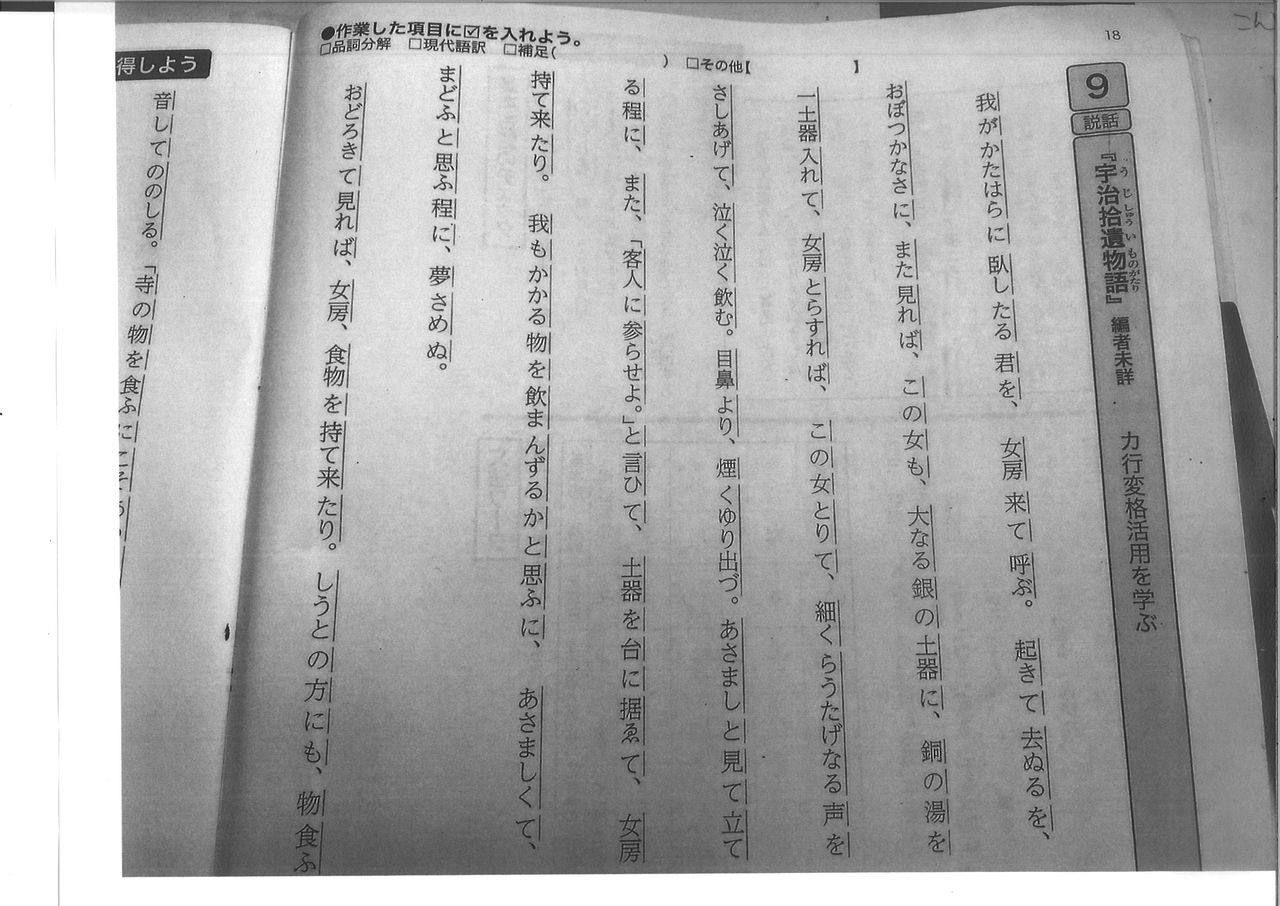 こん
18
9
説話
『宇治拾遺物語』 編者未詳 カ行変格活用を学ぶ
うじしゅういものがたり
我がかたはらに臥したる君を、女房来て呼ぶ。起きて去ぬるを、
おぼつかなさに、また見れば、この女も、大なる銀の土器に、銅の湯を
一土器入れて、女房とらすれば、この女とりて、細くらうたげなる声を
さしあげて、泣く泣く飲む。目鼻より、煙くゆり出づ。あさましと見て立て
る程に、また、「客人に参らせよ。」と言ひて、土器を台に据ゑて、女房
持て来たり。我もかかる物を飲まんずるかと思ふに、あさましくて、
まどふと思ふ程に、夢さめぬ。
おどろきて見れば、女房、食物を持て来たり。しうとの方にも、物食ふ
●作業した項目に☑を入れよう。
□品詞分解 □現代語訳 □補足( ) □その他【 】
得しよう
音してののしる。「寺の物を食ふにこそ